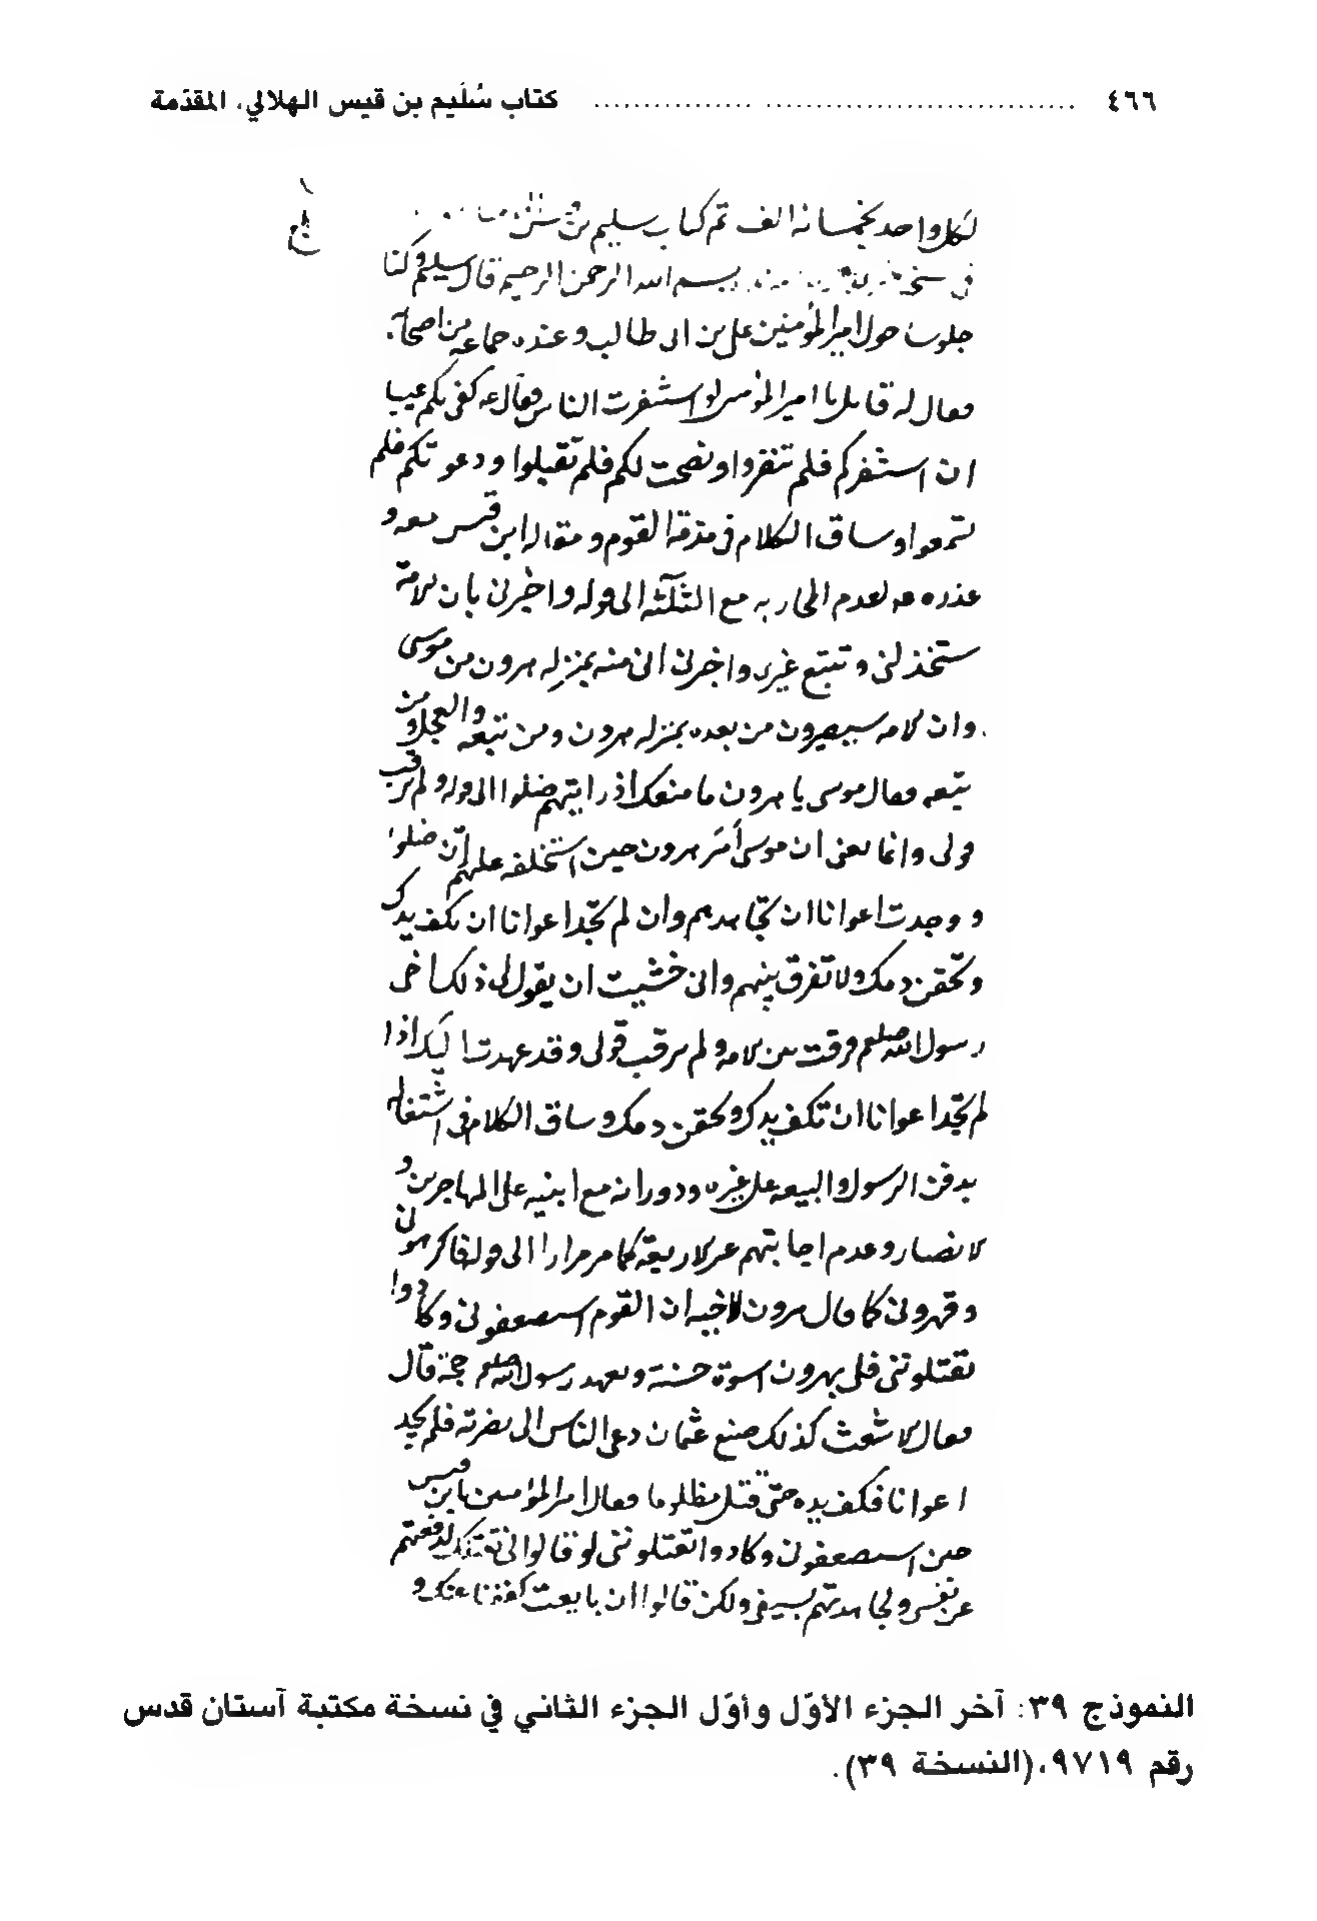 ٤٦٦ ............................................ كتاب سُلَيم بن قيس الهلالي، المقدّمة
لكل واحد بخمسانه الف تم كتاب سليم بن
بسم الله الرحمن الرحيم قال سليم وكنا
جلوسا حول امير المؤمنين على بن ابى طالب و عنده جماعه من اصحابه
فعال له قايل يا امير المؤمنين لو استنفرت الناس فقال عه كفى بكم عيبا
ان استنفركم فلم تنفروا ونصحت لكم فلم تقبلوا ودعوتكم فلم
تسمعوا وساق الكلام فى مذمة القوم ومقاله ابن قيس معه و
عذره عه لعدم المحاربه مع الثلثه الى قوله واخبرنى بان الامة
ستخذلنى وتتبع غيرى واخبرنى انى منه بمنزله هرون من موسى
وان الامه سيصيرون من بعده بمنزله هرون ومن تبعه والعجل ومن
تبعه فعال موسى يا هرون ما منعك اذ رايتهم ضلوا الى قوله ولم ترقب
قولى وانما يعنى ان موسى أمَر هرون حين استخلفه عليهم إنّ ضلوا
و وجدت اعوانا ان تجاهدهم وان لم تجد اعوانا ان تكف يدك
وتحقن دمك ولا تفرق بينهم وانى خشيت ان يقول لى ذلك اخى
رسول الله صلعم فرقت بين الامه ولم ترقب قولى وقد عهدت اليك اذا
لم تجد اعوانا ان تكف يدك وتحقن دمك وساق الكلام فى اشتغاله
بدفن الرسول والبيعه على غيره ودورانه مع ابنيه على المهاجرين و
الانصار وعدم اجابتهم غير الاربعة كما مر مرارا الى قوله فاكرهونى
وقهرونى كما قال هرون لاخيه ان القوم استضعفونى وكادوا
يقتلوننى فلى بهرون اسوة حسنة وبعهد رسول الله صلعم حجة قال
فعال الاشعث كذلك صنع عثمان دعى الناس الى نصرته فلم يجد
اعوانا فكف يده حتى قتل مظلوما فعال امير المؤمنين يا بن قيس
حين استضعفونى وكادوا يقتلوننى لو قالوا لى نقتلك لدفعتهم
عن نفسى ولجاهدتهم بسيفى ولكن قالوا ان بايعت كففنا عنك و
النموذج ٣٩: آخر الجزء الأوّل وأوّل الجزء الثاني في نسخة مكتبة آستان قدس
رقم ٩٧١٩، (النسخة ٣٩).